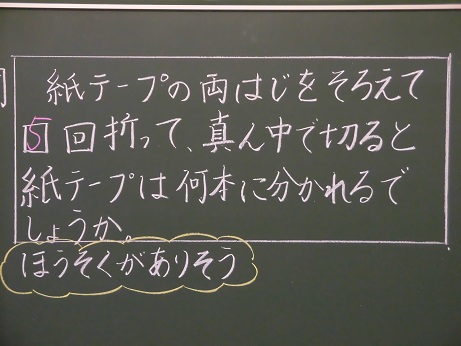 紙テープの両はじをそろえて
5回折って、真ん中で切ると
紙テープは何本に分かれるで
しょうか。
ほうそくがありそう